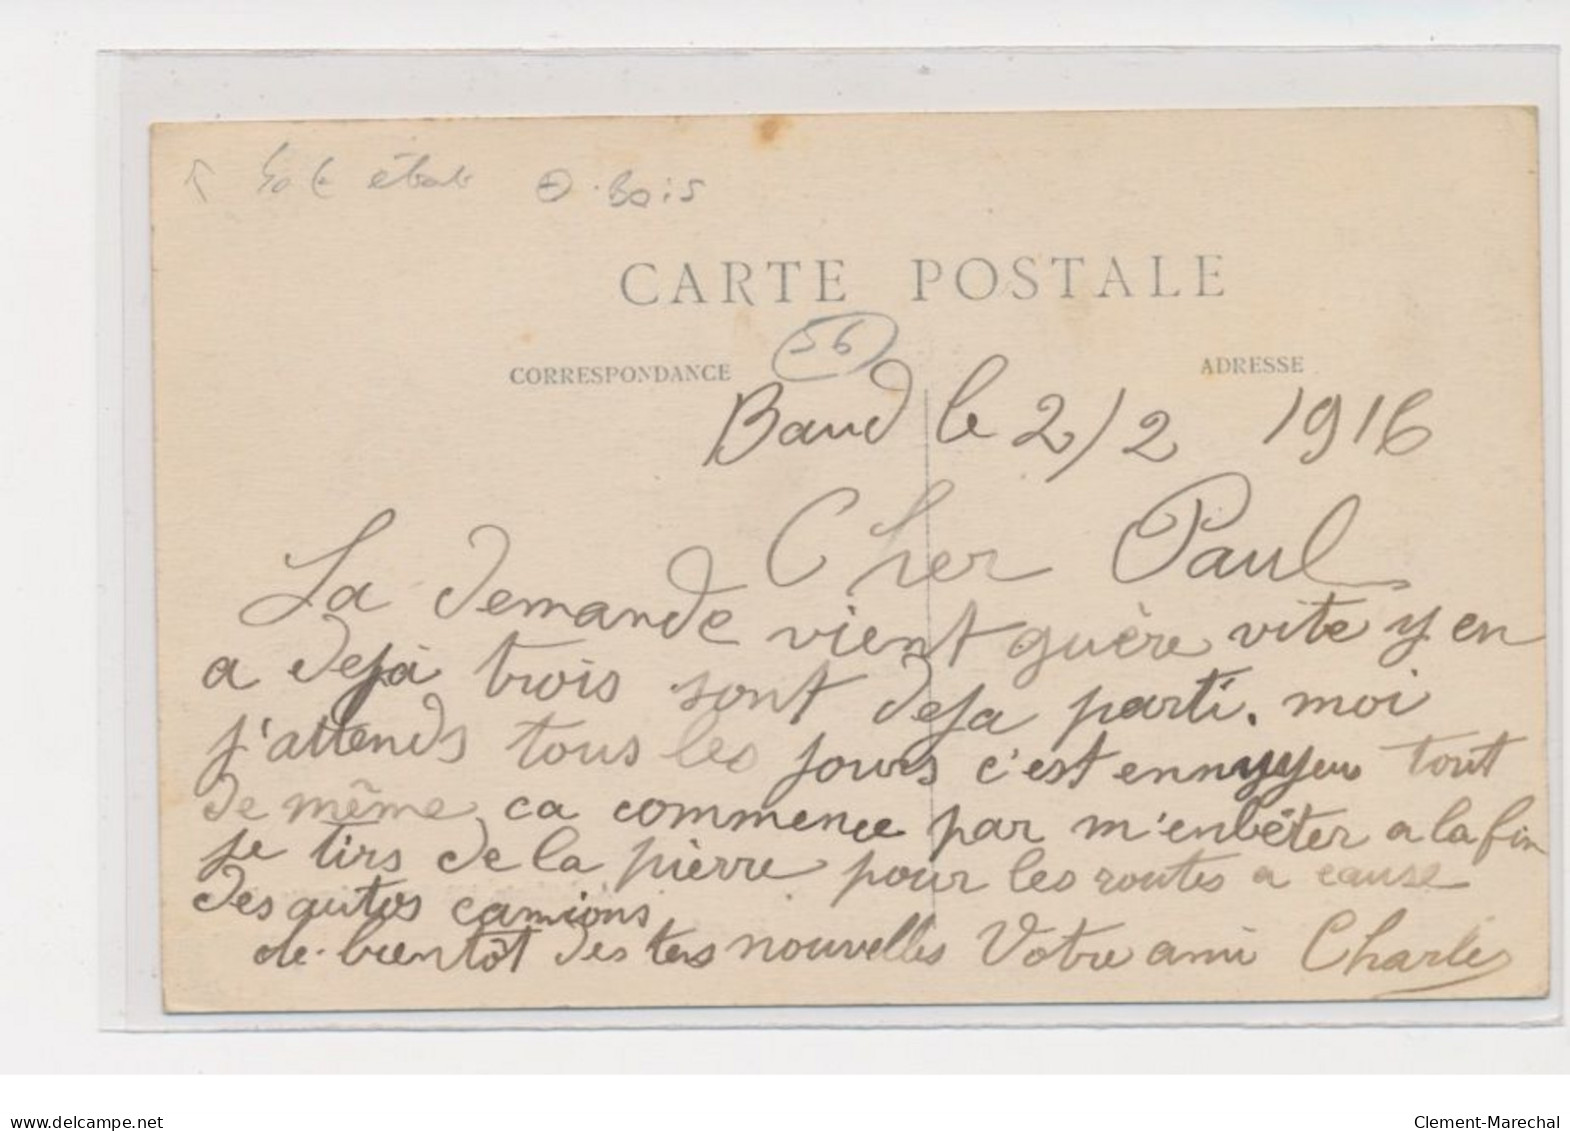 état Bois
CARTE POSTALE
56
CORRESPONDANCE ADRESSE
Baud le 2/2 1916
Cher Paul
La demande vient guère vite y en
a dejà trois sont deja parti. moi
j'attends tous les jours c'est ennyyeu tout
de même ca commence par m'enbêter a la fin
je tirs de la pièrre pour les routes a cause
des autos camions
de bientôt des tes nouvelles Votre ami Charles
www.delcampe.net Clement-Marechal